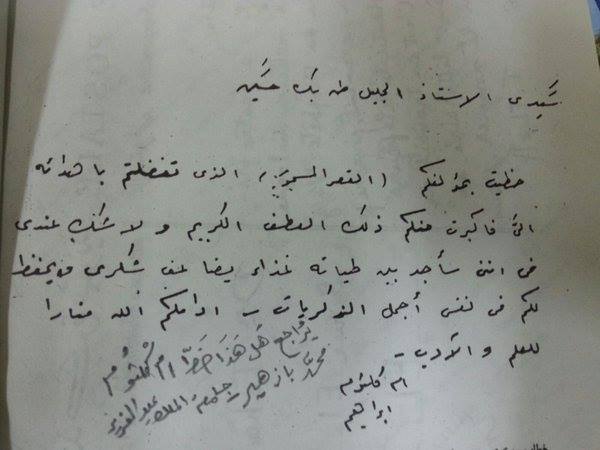 سيدى الاستاذ الجليل طه بك حسين
حظيت بمؤلفكم (القصر المسحور) الذى تفضلتم باهدائه
الىّ فاكبرت منكم ذلك العطف الكريم ولا شك عندى
فى اننى سأجد بين طياته غذاء يضاعف شكرى ويحفظ
لكم فى نفسى أجمل الذكريات - ادامكم الله منارا
للعلم والآدب -
ام كلثوم
ابراهيم
يُراجع هَل هَذا خَطّ ام كُلثُوم
محمّد باذهيل - جامعة الملك عبدالعزيز